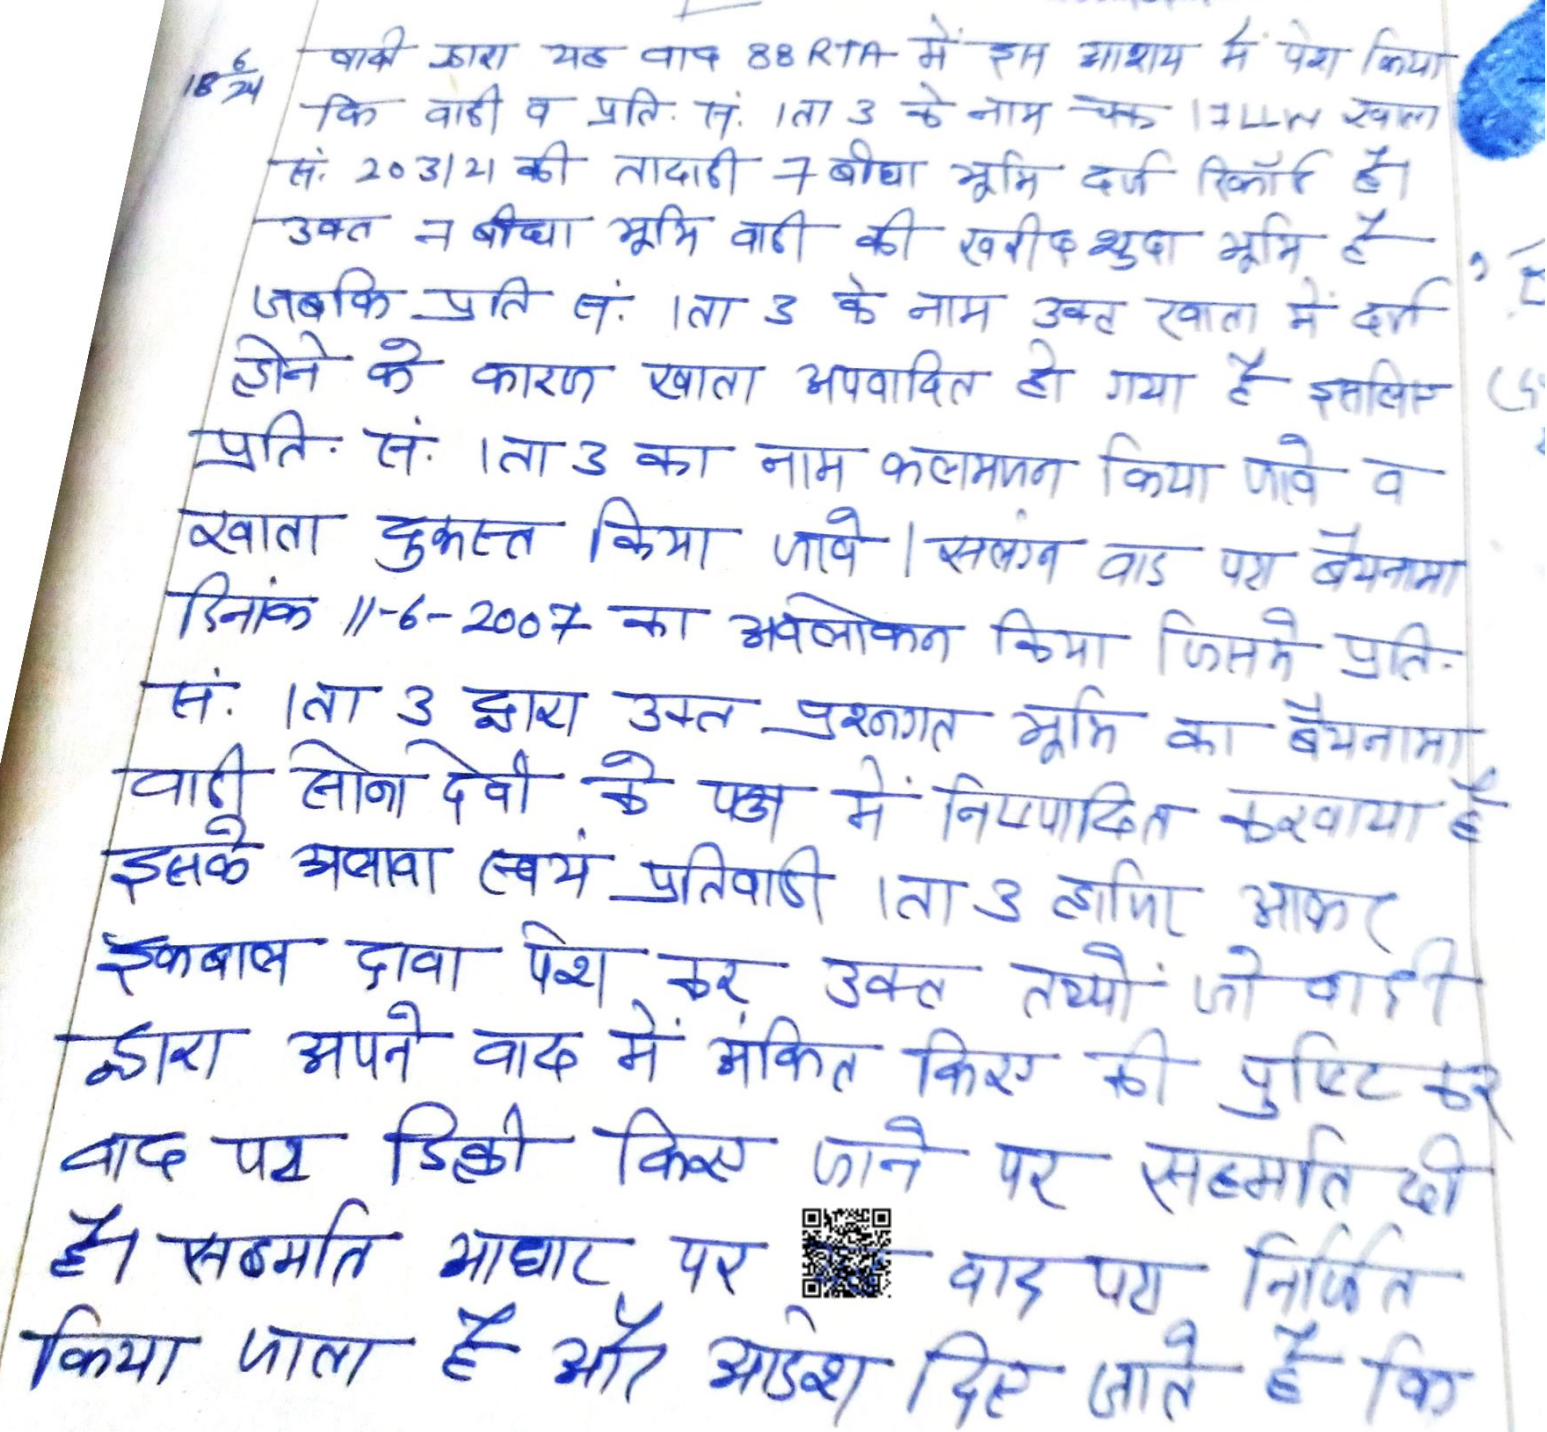 18/6/24 वादी द्वारा यह वाद 88 RTA में इस आशय में पेश किया
कि वादी व प्रति. सं. 1 ता 3 के नाम चक 17 LLW खाता
सं. 203/21 की तादादी 7 बीघा भूमि दर्ज रिकॉर्ड है।
उक्त 7 बीघा भूमि वादी की खरीद शुदा भूमि है
जबकि प्रति सं. 1 ता 3 के नाम उक्त खाता में दर्ज
होने के कारण खाता अपवादित हो गया है इसलिए
प्रति. सं. 1 ता 3 का नाम कलमजन किया जावे व
खाता दुरूस्त किया जावे। सलंग्न वाद पत्र बैयनामा
दिनांक 11-6-2007 का अवलोकन किया जिसमें प्रति.
सं. 1 ता 3 द्वारा उक्त प्रश्नगत भूमि का बैयनामा
वादी सोना देवी के पक्ष में निष्पादित करवाया है
इसके अलावा स्वयं प्रतिवादी 1 ता 3 हाजिर आकर
इकबाल दावा पेश कर उक्त तथ्यों जो वादी
द्वारा अपने वाद में अंकित किए की पुष्टि कर
वाद पत्र डिक्री किए जाने पर सहमति दी
है। सहमति आधार पर वाद पत्र निर्णित
किया जाता है और आदेश दिए जाते है कि